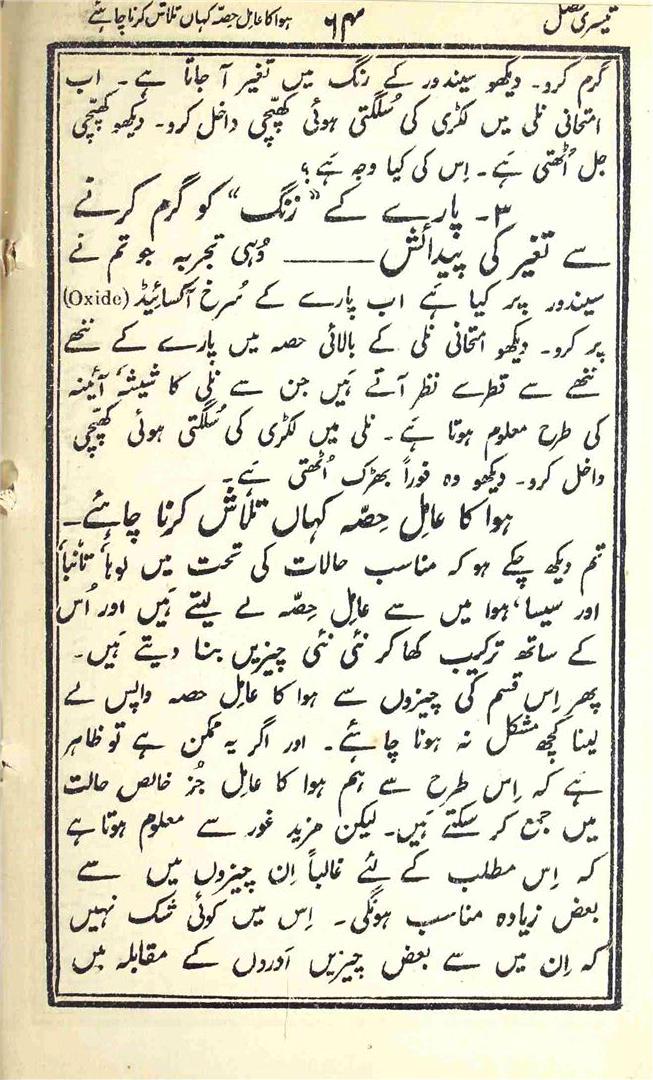 تیسری فصل ۶۴ ہوا کا عامل حصّہ کہاں تلاش کرنا چاہئے
گرم کرو۔ دیکھو سیندور کے رنگ میں تغیر آ جاتا ہے۔ اب
امتحانی نلی میں لکڑی کی سُلگتی ہوئی کھپّچی داخل کرو۔ دیکھو کھپّچی
جل اُٹھتی ہَے۔ اِس کی کیا وجہ ہَے؟
۳۔ پارے کے “زنگ” کو گرم کرنے
سے تغیر کی پیدائش ——— وُہی تجربہ جو تم نے
سیندور پر کیا ہَے اب پارے کے سُرخ آکسائیڈ (Oxide)
پر کرو۔ دیکھو امتحانی نلی کے بالائی حصہ میں پارے کے ننھے
ننھے سے قطرے نظر آتے ہَیں جن سے نلی کا شیشہ، آئینہ
کی طرح معلوم ہوتا ہَے۔ نلی میں لکڑی کی سُلگتی ہوئی کھپّچی
داخل کرو۔ دیکھو وہ فوراً بھڑک اُٹھتی ہَے۔
ہوا کا عامل حِصّہ کہاں تلاش کرنا چاہئے۔
تم دیکھ چکے ہو کہ مناسب حالات کی تحت میں لوہا، تانبا،
اور سیسا، ہوا میں سے عامل حِصّہ لے لیتے ہَیں اور اُس
کے ساتھ ترکیب کھا کر نئی نئی چیزیں بنا دیتے ہَیں۔
پھر اِس قسم کی چیزوں سے ہوا کا عامل حصہ واپس لے
لینا کچھ مشکل نہ ہونا چاہئے۔ اور اگر یہ ممکن ہے تو ظاہر
ہَے کہ اِس طرح سے ہم ہوا کا عامل جُز خالص حالت
میں جمع کر سکتے ہَیں۔ لیکن مزید غور سے معلوم ہوتا ہے
کہ اِس مطلب کے لئے غالباً اِن چیزوں میں سے
بعض زیادہ مناسب ہونگی۔ اِس میں کوئی شک نہیں
کہ اِن میں سے بعض چیزیں اَوروں کے مقابلہ میں